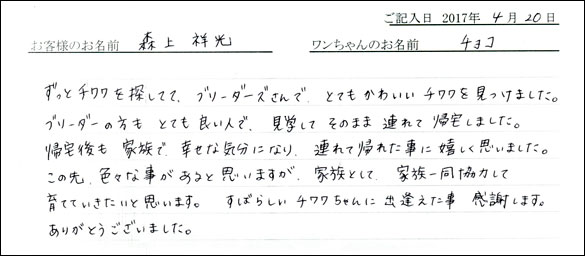 ご記入日 2017年 4月 20日
お客様のお名前 森上 祥光 ワンちゃんのお名前 チョコ
ずっとチワワを探してて、ブリーダーズさんで、とてもかわいいチワワを見つけました。
ブリーダーの方も とても良い人で、見学して そのまま 連れて 帰宅しました。
帰宅後も 家族で、幸せな気分になり、連れて帰れた事に嬉しく思いました。
この先、色々な事があると思いますが、家族として、家族一同協力して
育てていきたいと思います。 すばらしい チワワちゃんに 出逢えた事 感謝します。
ありがとうございました。